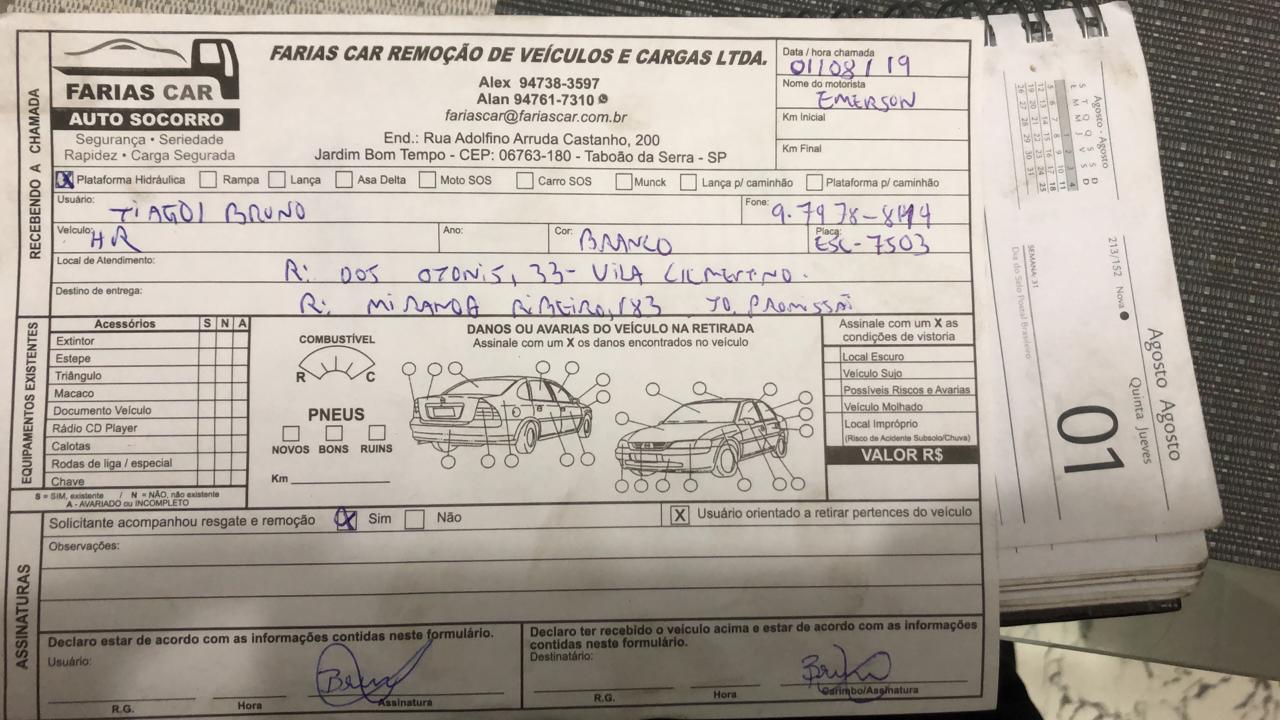 FARIAS CAR
AUTO SOCORRO
Segurança • Seriedade
Rapidez • Carga Segurada
FARIAS CAR REMOÇÃO DE VEÍCULOS E CARGAS LTDA.
Alex 94738-3597
Alan 94761-7310
fariascar@fariascar.com.br
End.: Rua Adolfino Arruda Castanho, 200
Jardim Bom Tempo - CEP: 06763-180 - Taboão da Serra - SP
Data / hora chamada
01/08/19
Nome do motorista
EMERSON
Km Inicial
Km Final
RECEBENDO A CHAMADA
X Plataforma Hidráulica Rampa Lança Asa Delta Moto SOS Carro SOS Munck Lança p/ caminhão Plataforma p/ caminhão
Usuário: BRUNO Fone:
Veículo: HR Ano: Cor: BRANCO Placa: ESC-7503
Local de Atendimento: R: DOS OTONIS, 33- VILA
Destino de entrega: R: MIRANDA RIBEIRO, 183
EQUIPAMENTOS EXISTENTES
Acessórios S N A
Extintor
Estepe
Triângulo
Macaco
Documento Veículo
Rádio CD Player
Calotas
Rodas de liga / especial
Chave
S = SIM, existente / N = NÃO, não existente
A - AVARIADO ou INCOMPLETO
COMBUSTÍVEL
R C
PNEUS
NOVOS BONS RUINS
Km
DANOS OU AVARIAS DO VEÍCULO NA RETIRADA
Assinale com um X os danos encontrados no veículo
Assinale com um X as
condições de vistoria
Local Escuro
Veículo Sujo
Possíveis Riscos e Avarias
Veículo Molhado
Local Impróprio
(Risco de Acidente Subsolo/Chuva)
VALOR R$
Solicitante acompanhou resgate e remoção X Sim Não X Usuário orientado a retirar pertences do veículo
Observações:
ASSINATURAS
Declaro estar de acordo com as informações contidas neste formulário.
Usuário:
R.G. Hora Assinatura
Declaro ter recebido o veículo acima e estar de acordo com as informações
contidas neste formulário.
Destinatário:
R.G. Hora Carimbo/Assinatura
Agosto - Agosto
S T Q Q S S D
213/152 Nova
SEMANA: 31
Dia do Selo Postal Brasileiro
Agosto Agosto
Quinta Jueves
01